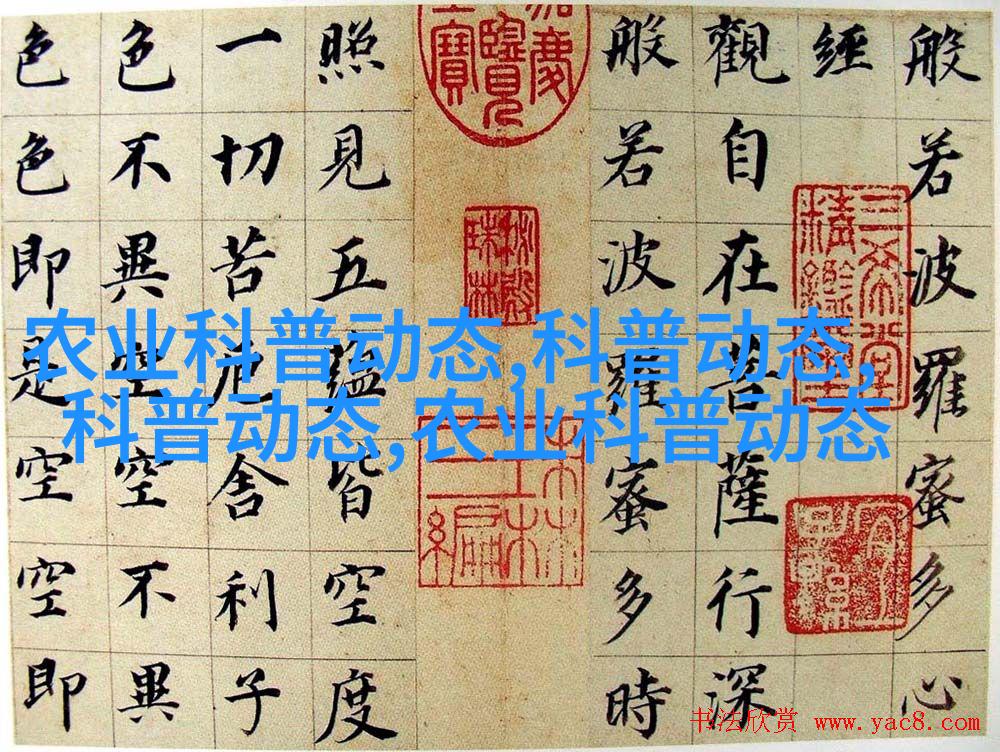 般若波羅蜜多心
經
觀自在菩薩行深
般若波羅蜜多時
照見五蘊皆空度
一切苦厄舍利子
色不異空空不異
色色即是空空即
三希堂精鑑璽
秘殿珠林
农业科普动态,科普动态,
科普动态,农业科普动态
书法欣赏 www.yac8.com